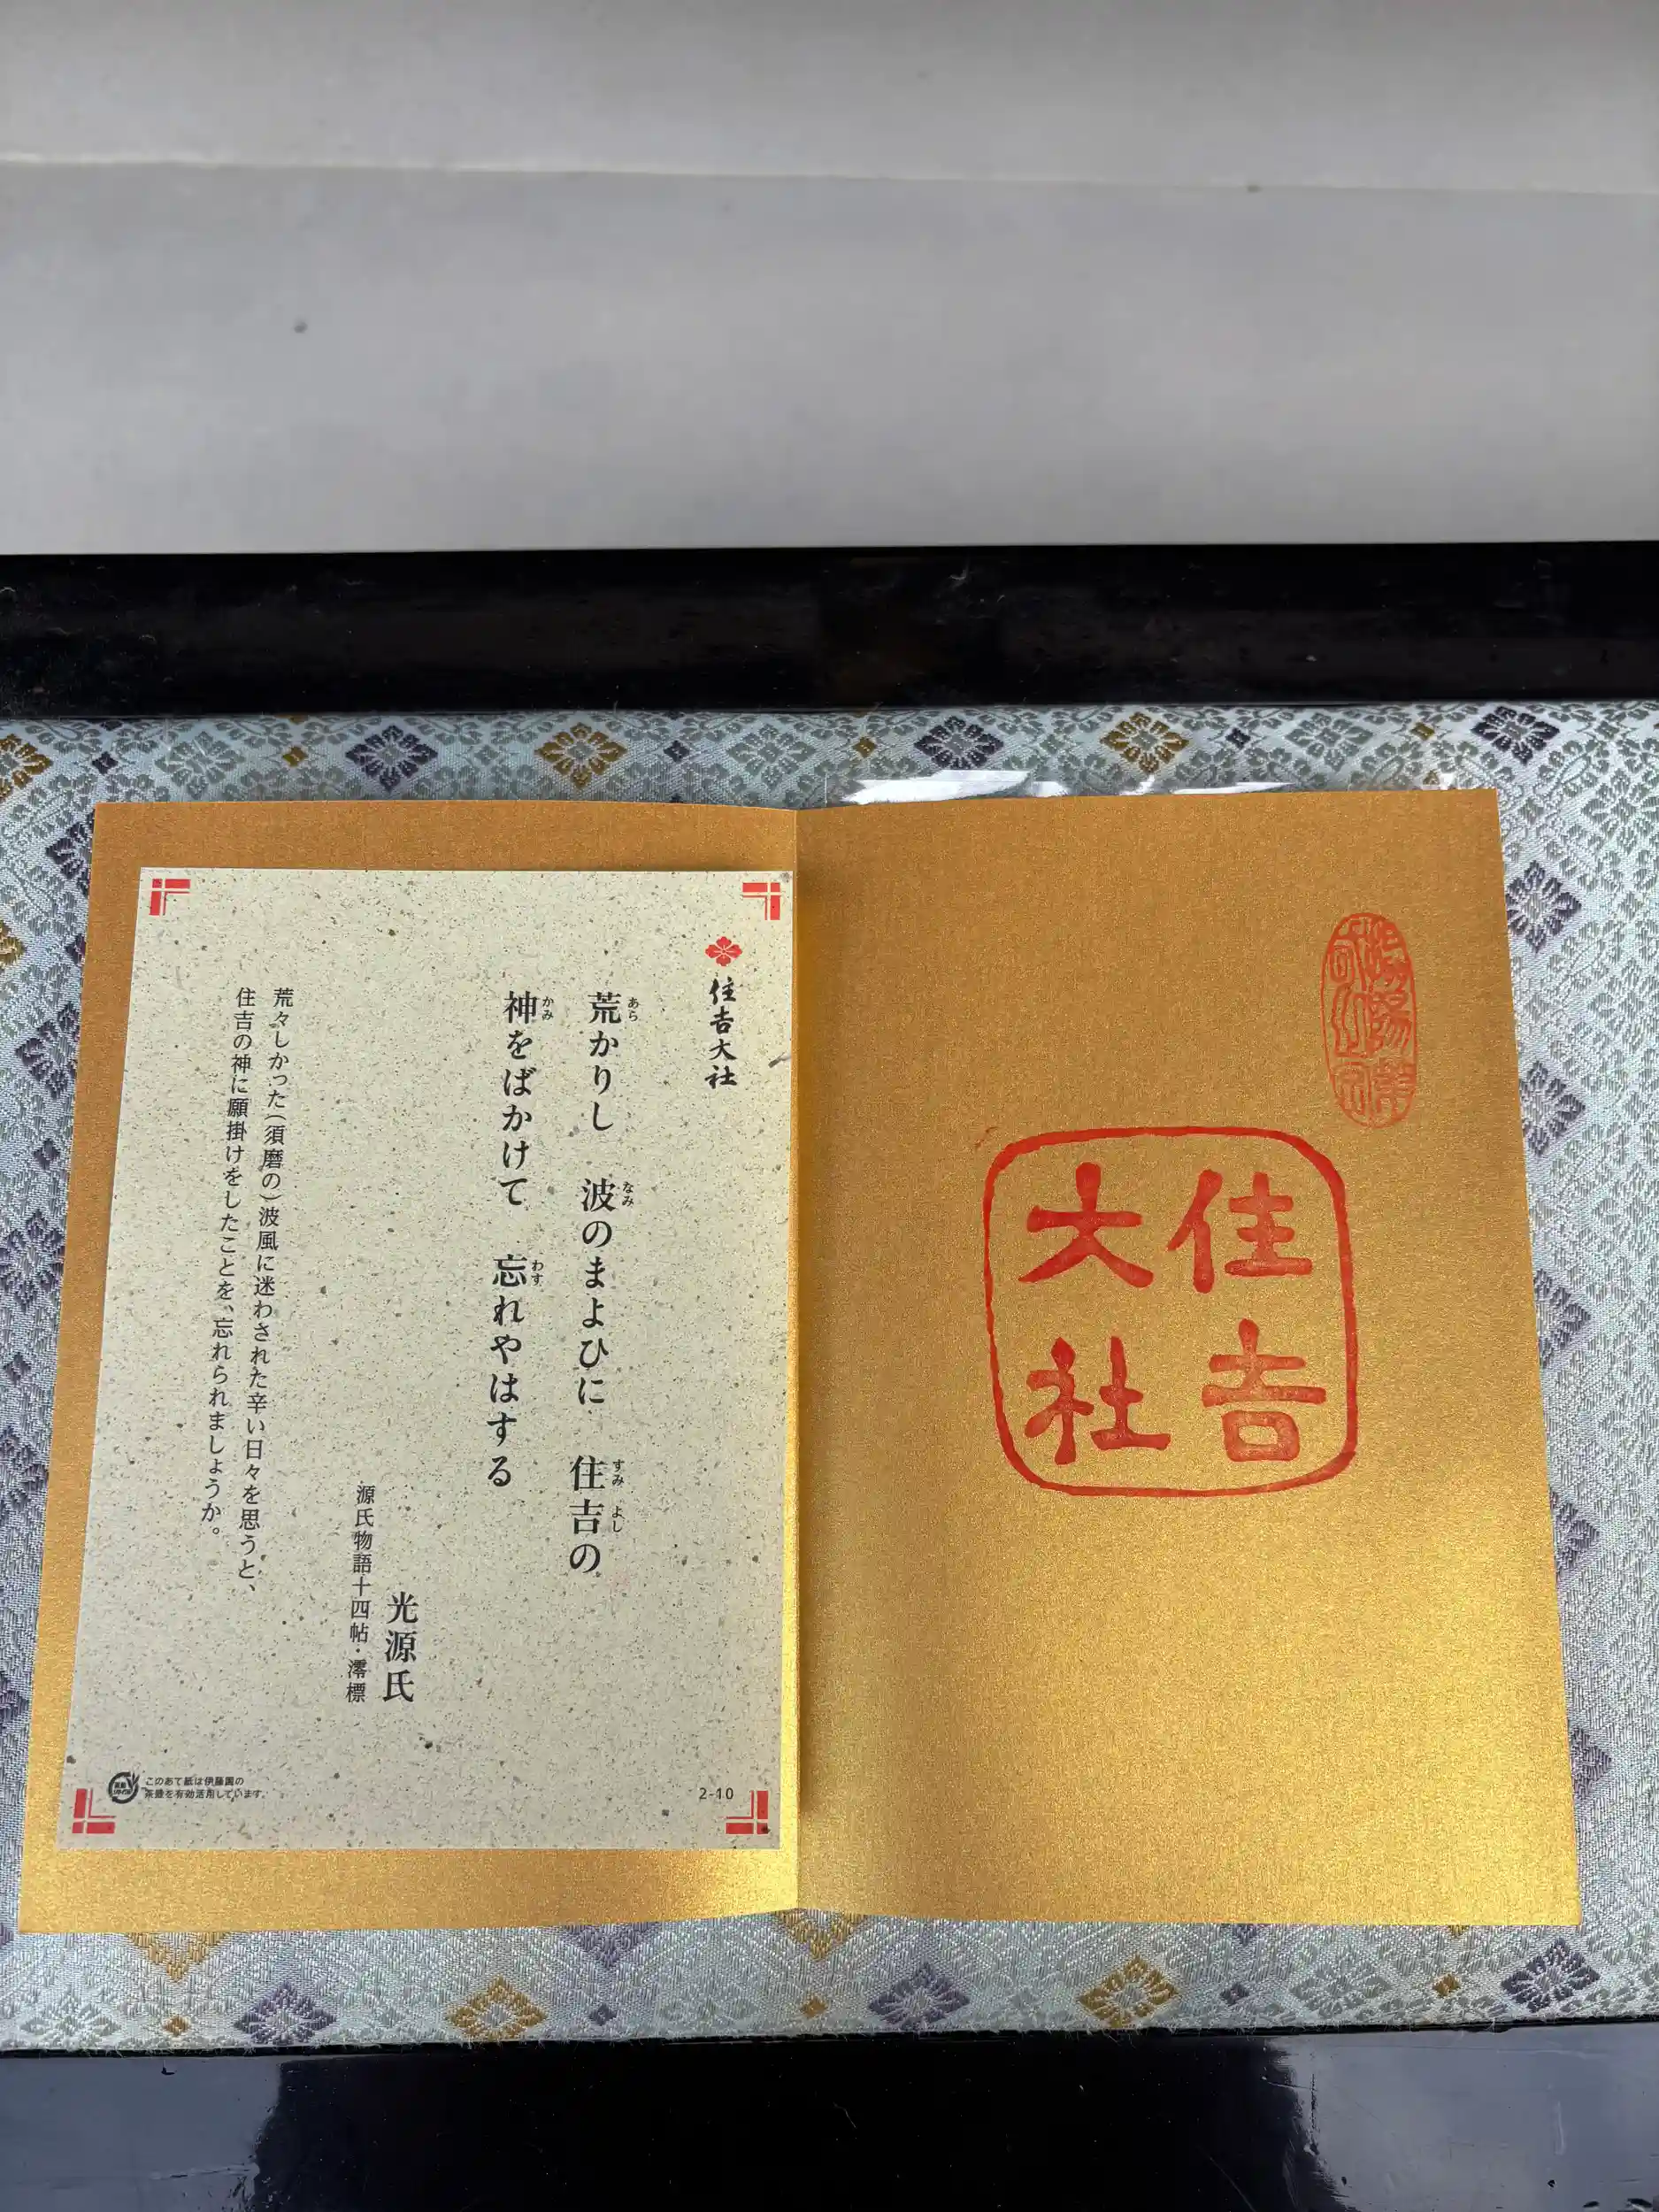 住吉
大社
住吉大社
荒かりし 波のまよひに 住吉の
あら なみ すみ よし
神をばかけて 忘れやはする
かみ わす
光源氏
源氏物語十四帖・澪標
荒々しかった(須磨の)波風に迷わされた辛い日々を思うと、
住吉の神に願掛けをしたことを、忘れられましょうか。
このあて紙は伊藤園の
茶殻を有効活用しています。
2-10